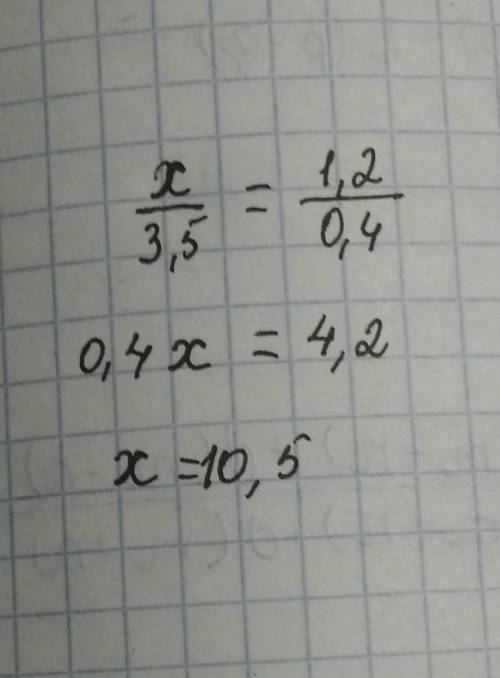 x/3,5 = 1,2/0,4
0,4x = 4,2
x = 10,5